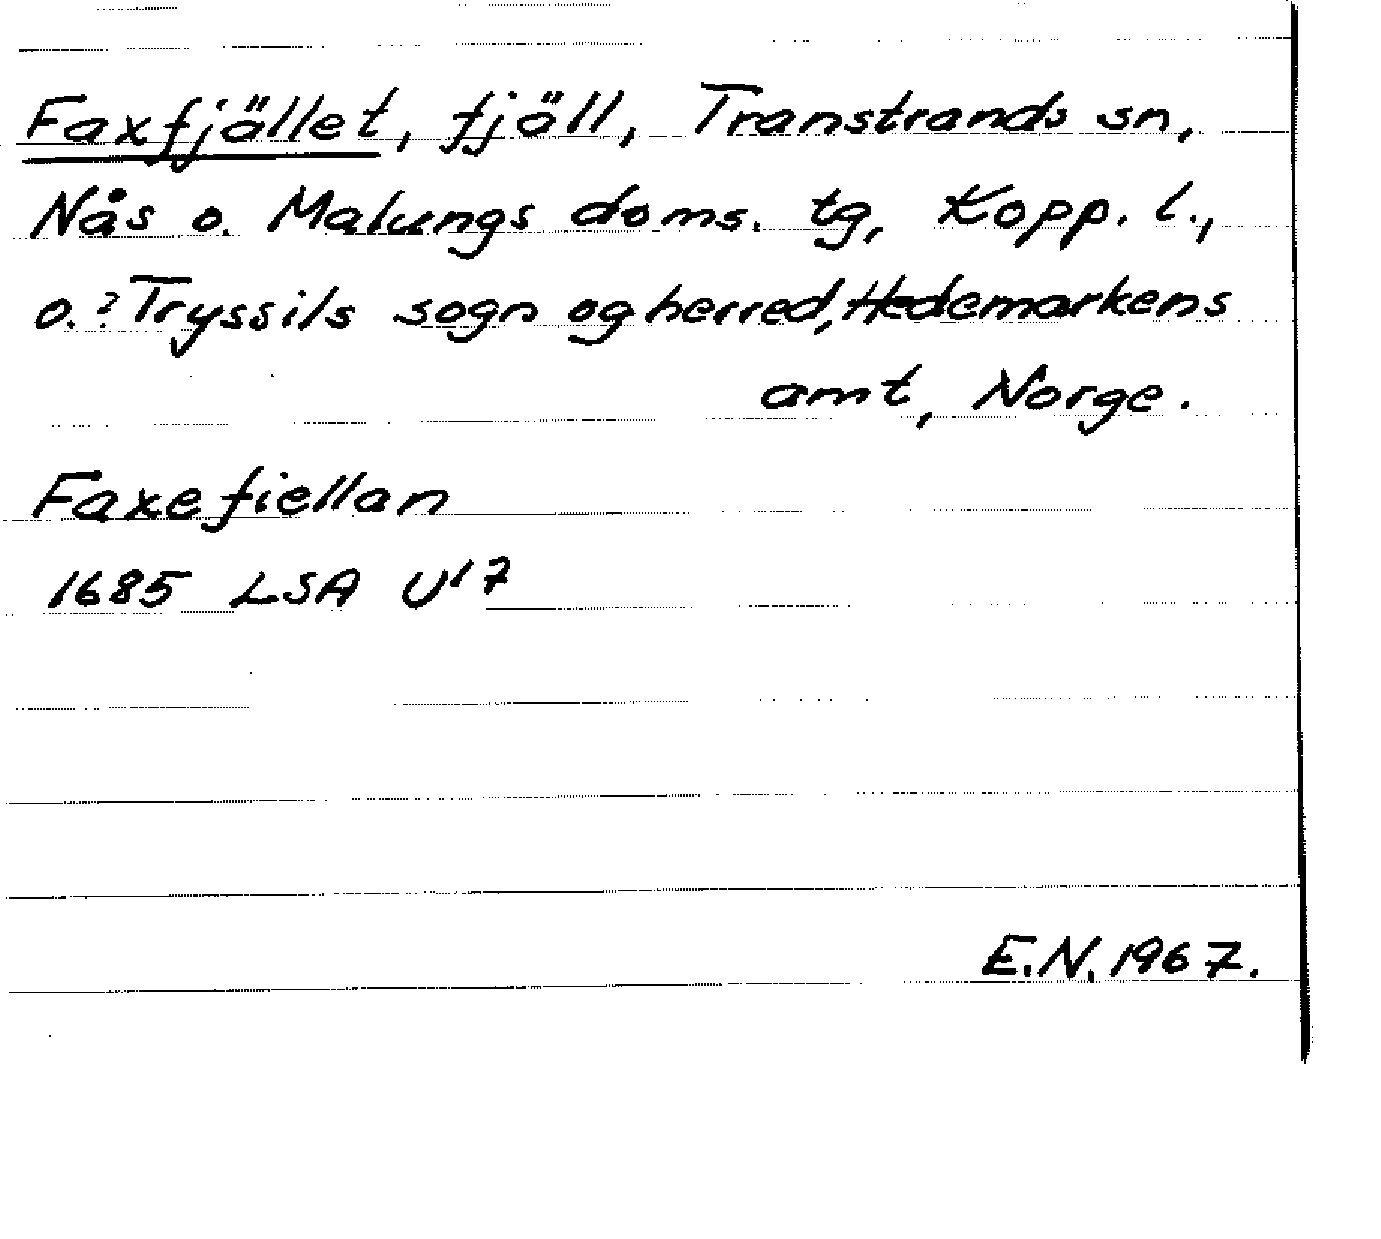 Faxfjället, fjäll, Transtrands sn,
Nås o. Malungs doms. tg, Kopp. l.,
o.? Tryssils sogn og herred, Hedemarkens
amt, Norge.
Faxefiellan
1685 LSA U17
E.N. 1967.